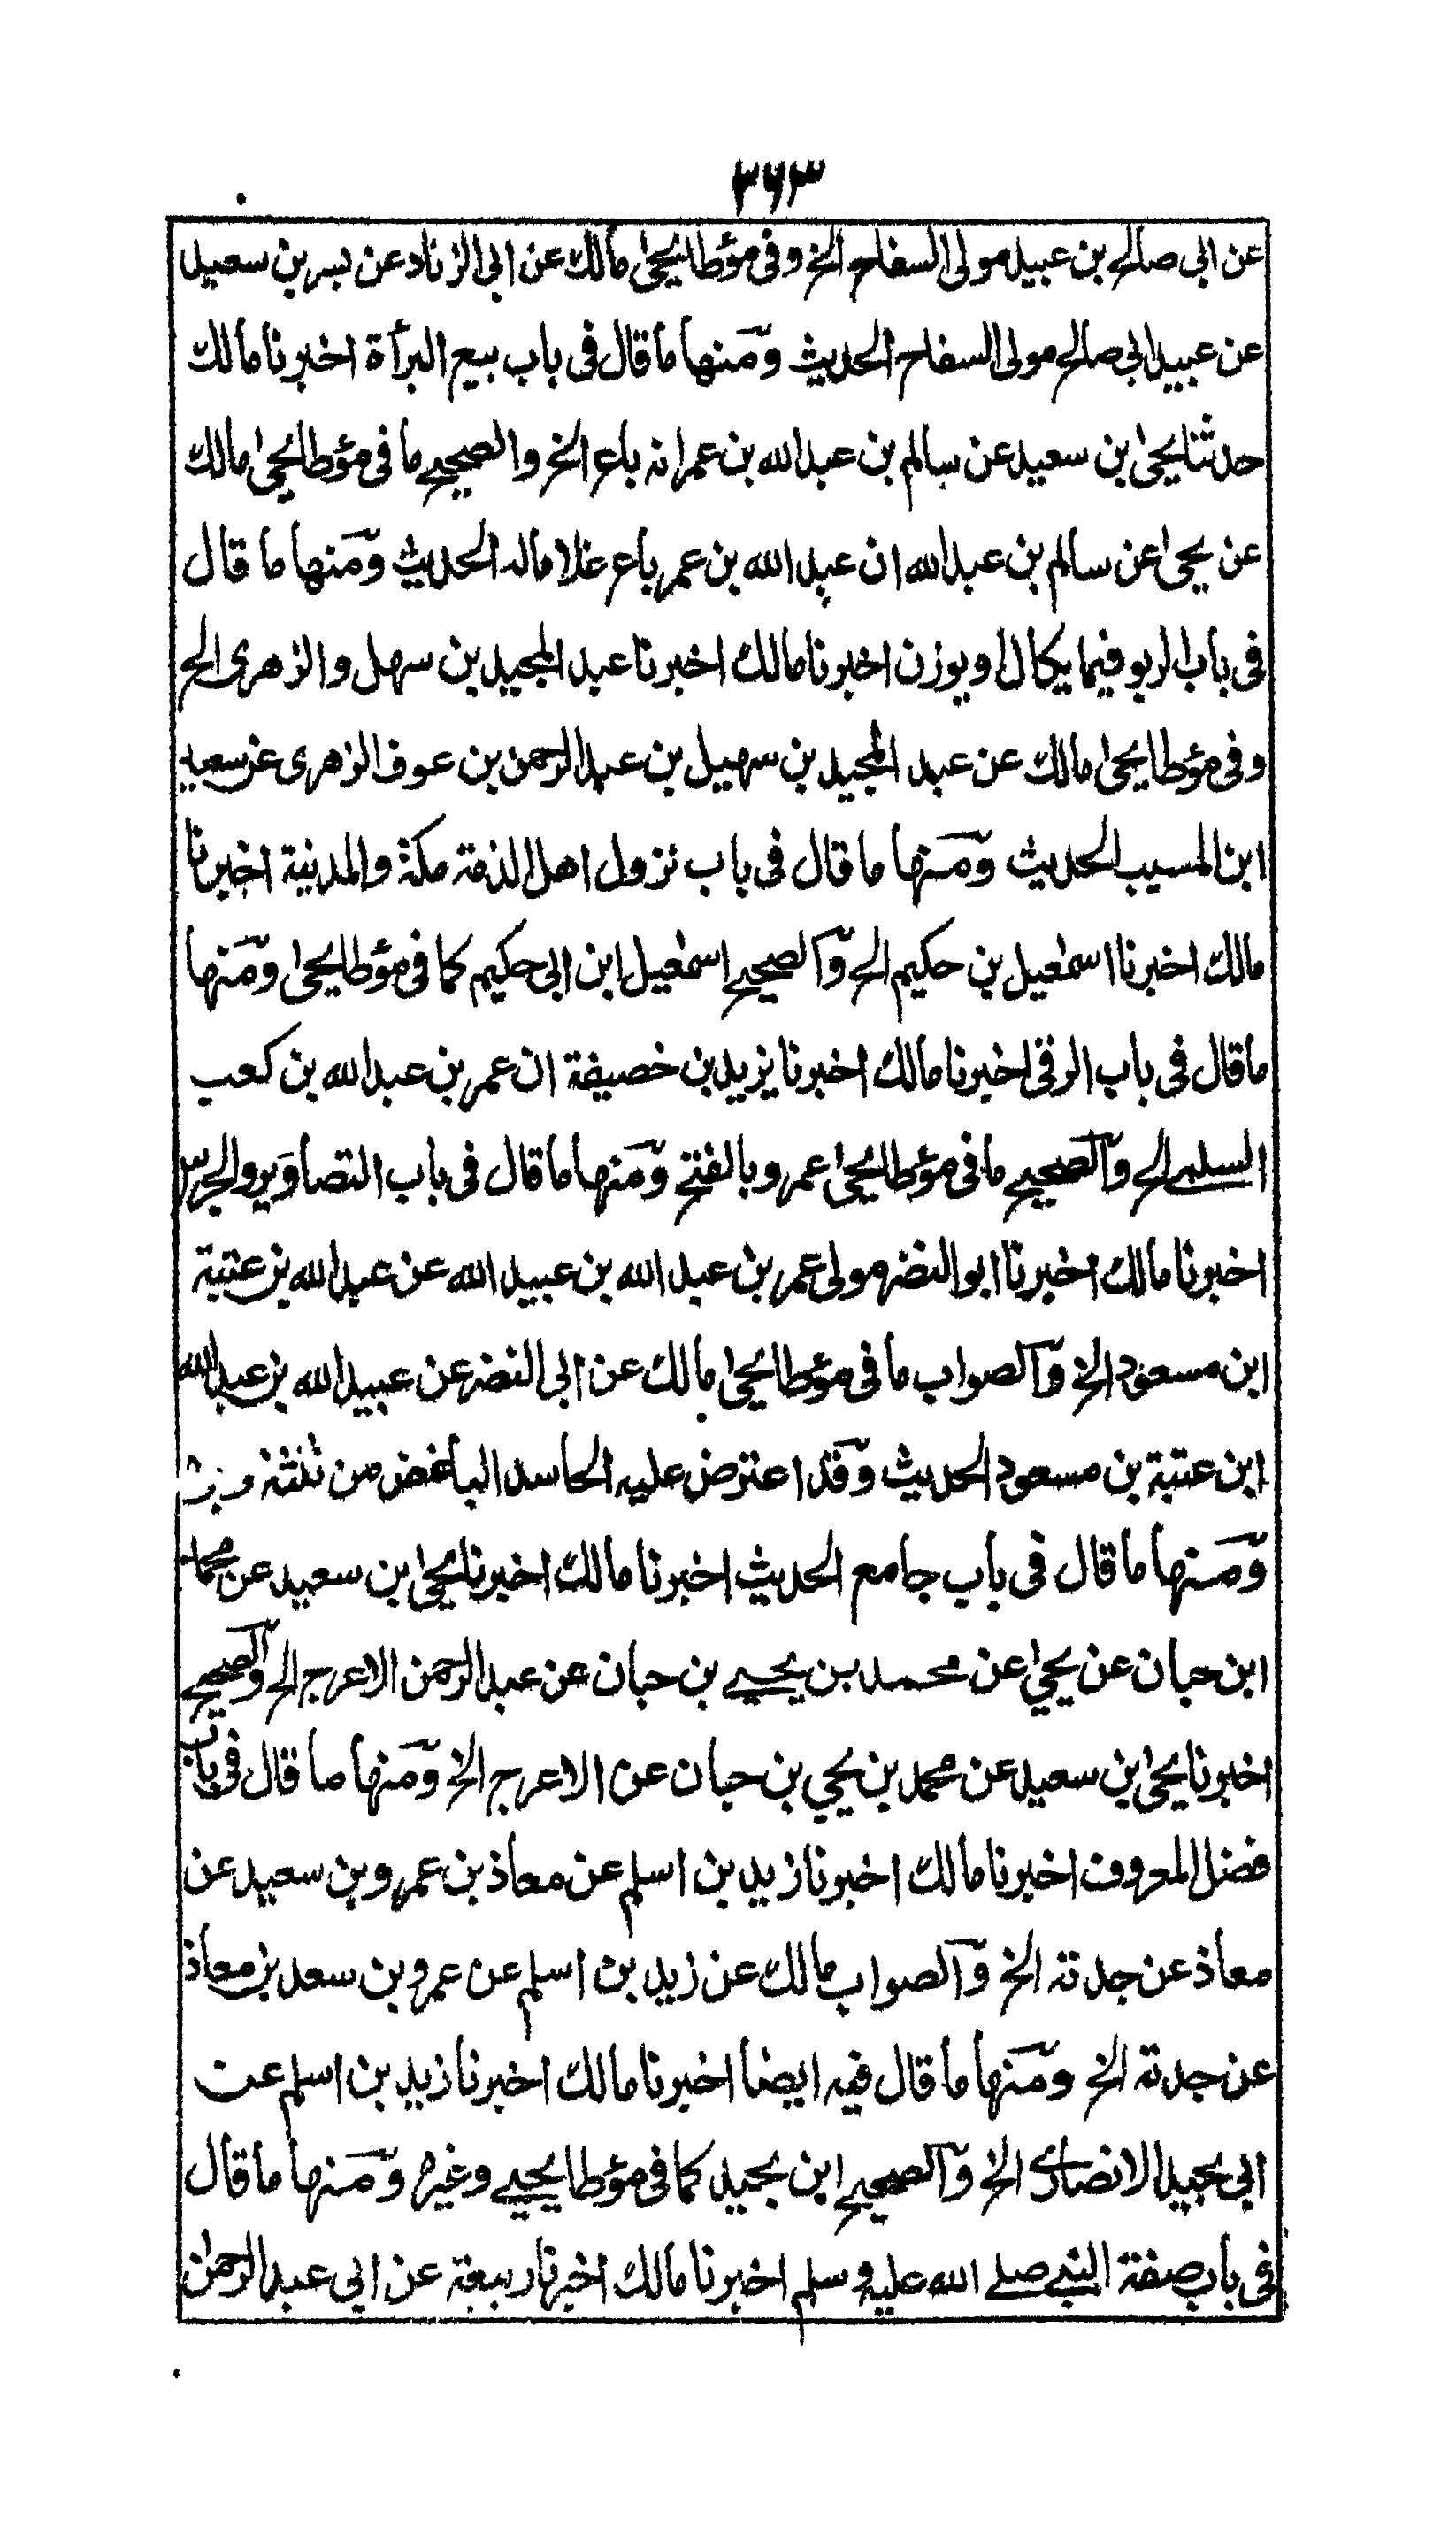 ٣٦٣
عن ابي صالح بن عبيد مولى السفاح الخ وفي مؤطا يحيى مالك عن ابي الزناد عن بسر بن سعيد
عن عبيد ابي صالح مولى السفاح الحديث ومنها ما قال في باب بيع البرأة اخبرنا مالك
حدثنا يحيى بن سعيد عن سالم بن عبد الله بن عمر انه باع الخ والصحيح ما في مؤطا يحيى مالك
عن يحيى عن سالم بن عبد الله ان عبد الله بن عمر باع غلاما له الحديث ومنها ما قال
في باب الربو فيما يكال او يوزن اخبرنا مالك اخبرنا عبد المجيد بن سهل والزهرى الخ
وفي مؤطا يحيى مالك عن عبد المجيد بن سهيل بن عبد الرحمن بن عوف الزهرى عن سعيد
ابن المسيب الحديث ومنها ما قال في باب نزول اهل الذمة مكة والمدينة اخبرنا
مالك اخبرنا اسمعيل بن حكيم الخ والصحيح اسمعيل ابن ابي حكيم كما في مؤطا يحيى ومنها
ما قال في باب الرقى اخبرنا مالك اخبرنا يزيد بن خصيفة ان عمر بن عبد الله بن كعب
السلمي الخ والصحيح ما في مؤطا يحيى عمرو بالفتح ومنها ما قال في باب التصاوير والجرس
اخبرنا مالك اخبرنا ابو النضر مولى عمر بن عبد الله بن عبيد الله عن عبد الله بن عتبة
ابن مسعود الخ والصواب ما في مؤطا يحيى مالك عن ابي النضر عن عبيد الله بن عبد الله
ابن عتبة بن مسعود الحديث وقد اعترض عليه الحاسد الباغض من ثلثة
ومنها ما قال في باب جامع الحديث اخبرنا مالك اخبرنا يحيى بن سعيد عن محمد
ابن حبان عن يحيى عن محمد بن يحيى بن حبان عن عبد الرحمن الاعرج الخ والصحيح
اخبرنا يحيى بن سعيد عن محمد بن يحيى بن حبان عن الاعرج الخ ومنها ما قال في باب
فضل المعروف اخبرنا مالك اخبرنا زيد بن اسلم عن معاذ بن عمرو بن سعيد عن
معاذ عن جدته الخ والصواب مالك عن زيد بن اسلم عن عمرو بن سعد بن معاذ
عن جدته الخ ومنها ما قال فيه ايضا اخبرنا مالك اخبرنا زيد بن اسلم عن
ابي بجيد الانصاري الخ والصحيح ابن بجيد كما في مؤطا يحيى وغيره ومنها ما قال
في باب صفة النبي صلى الله عليه وسلم اخبرنا مالك اخبرنا ربيعة عن ابي عبد الرحمن